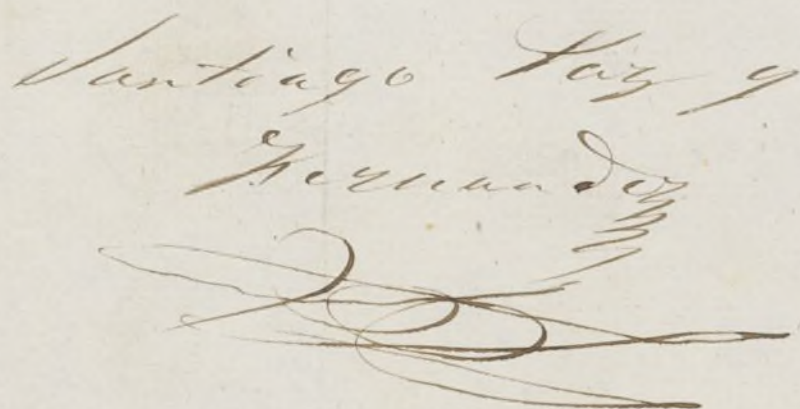 Santiago Paz y
Fernandez